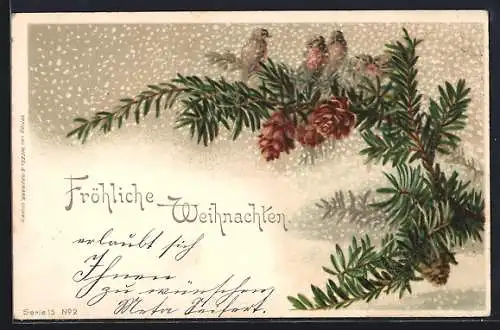 Fröhliche
Weihnachten.
erlaubt sich
Ihnen
zu wünschen
Meta Seifert.
Serie 15 No 2